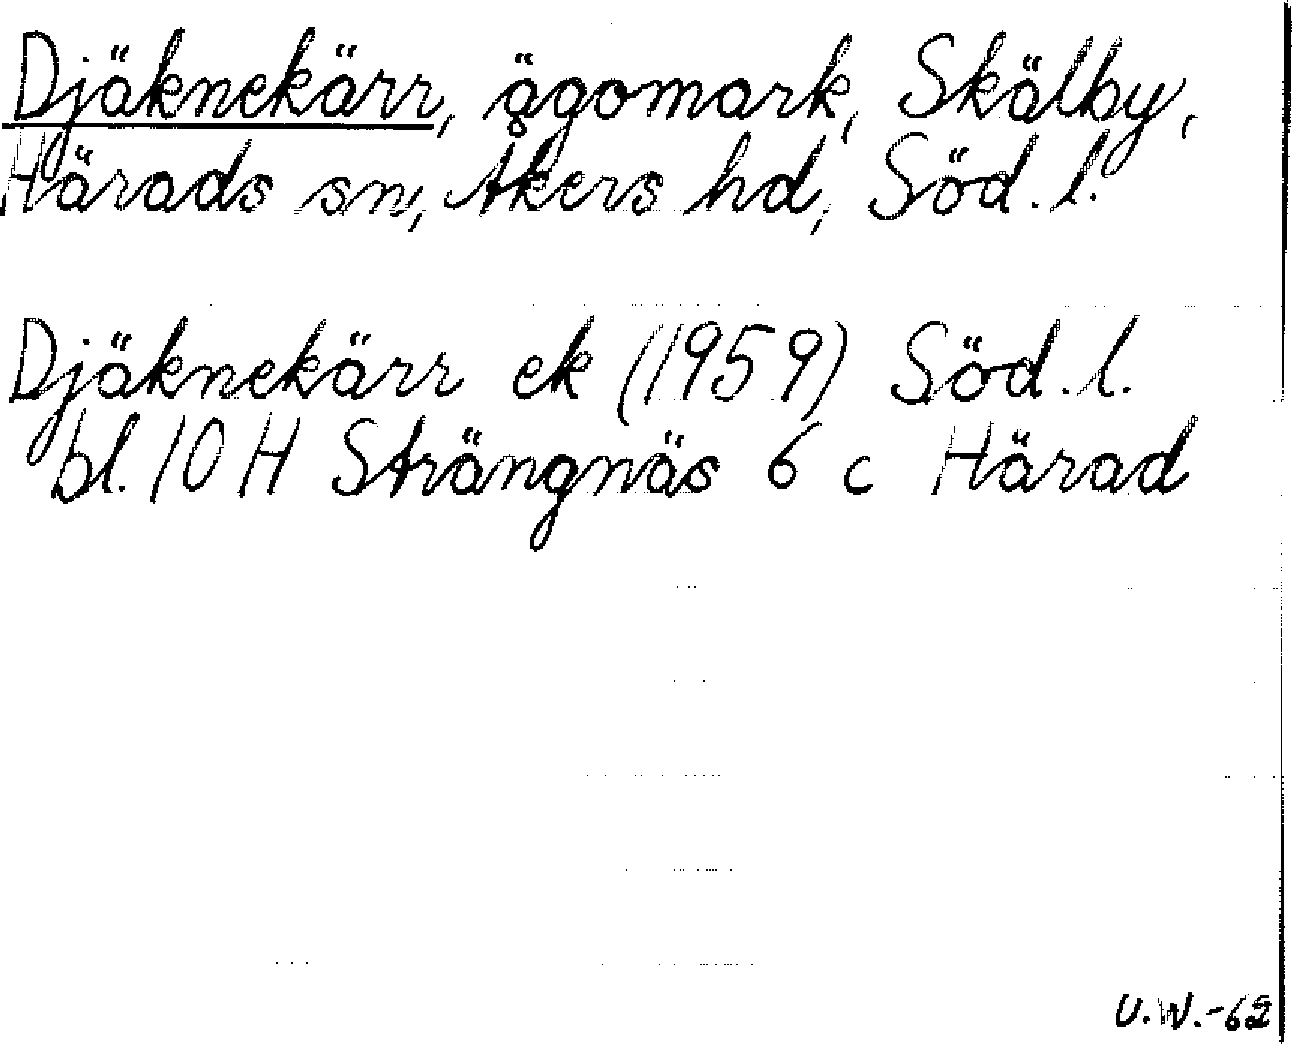 Djäknekärr, ägomark, Skälby,
Härads sn, Åkers hd, Söd. l.
Djäknekärr ek (1959) Söd. l.
bl. 10 H Strängnäs 6 c Härad
U.W.-62